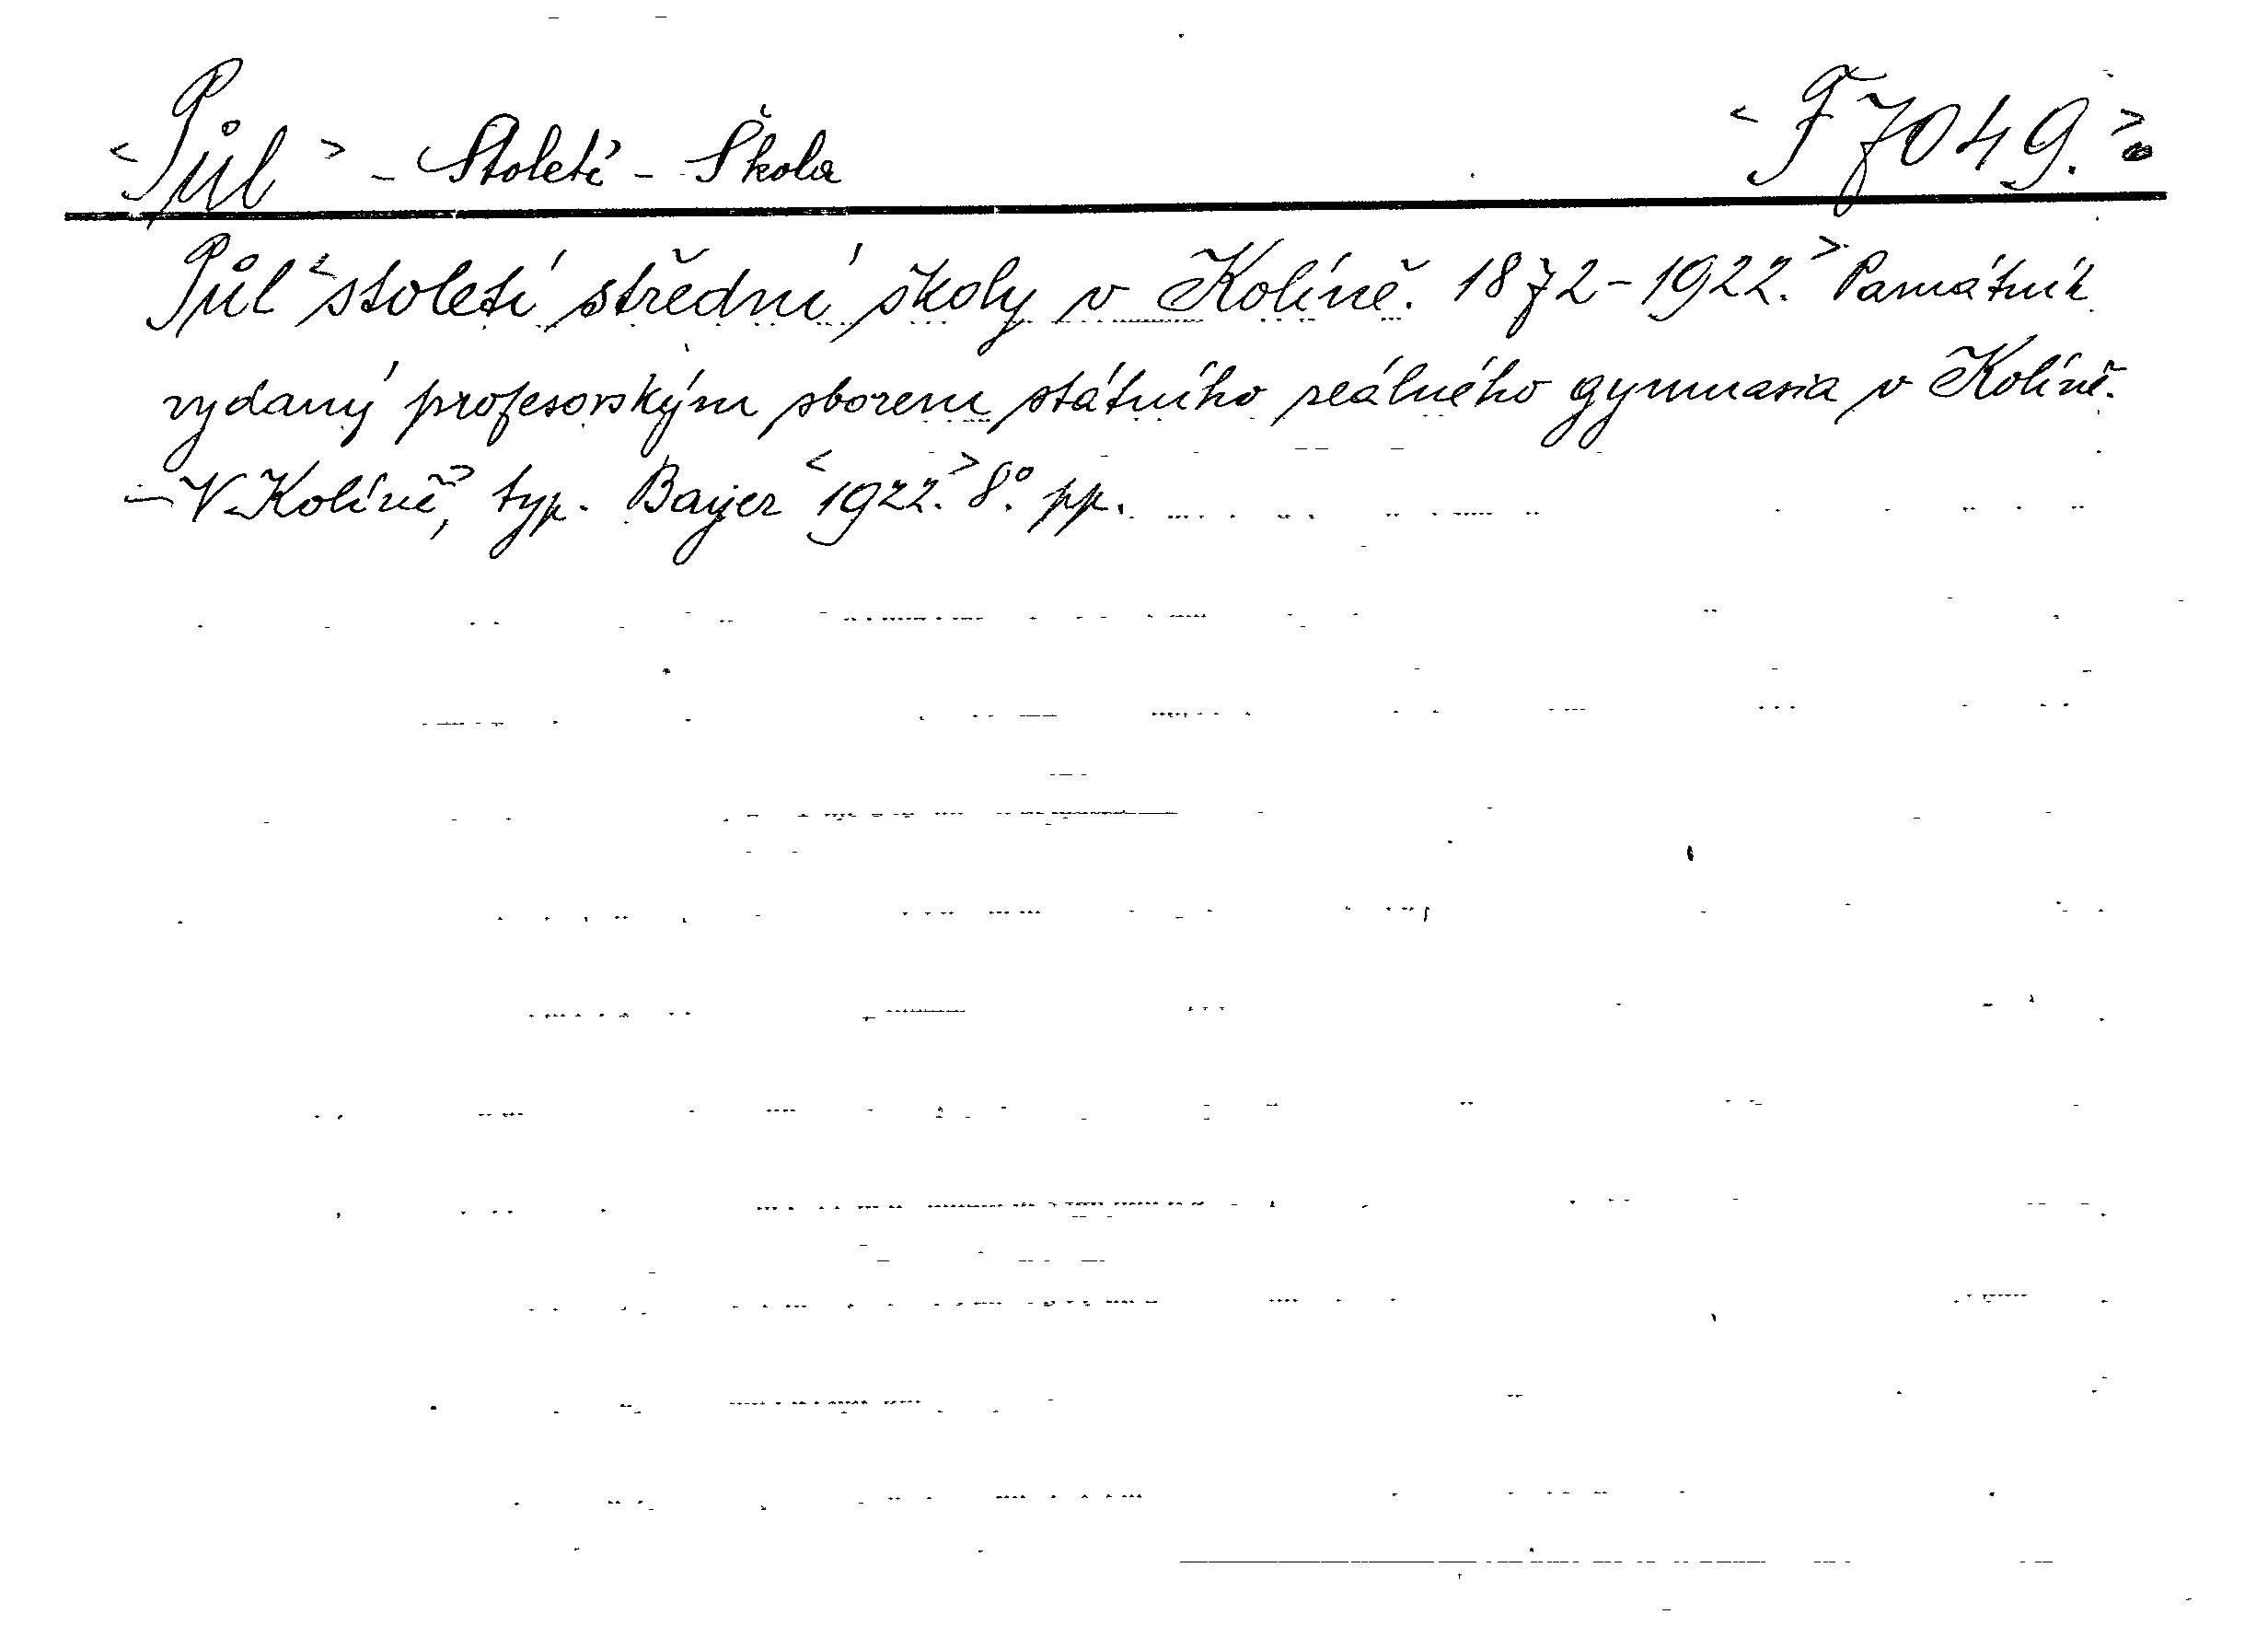 <Půl> - Století - Škola <F 7049.>
Půl <století střední školy v Kolíně. 1872-1922.> Památník
vydaný profesorským sborem státního reálného gymnasia v Kolíně.
- V Kolíně, typ. Bayer <1922.> 8° pp.